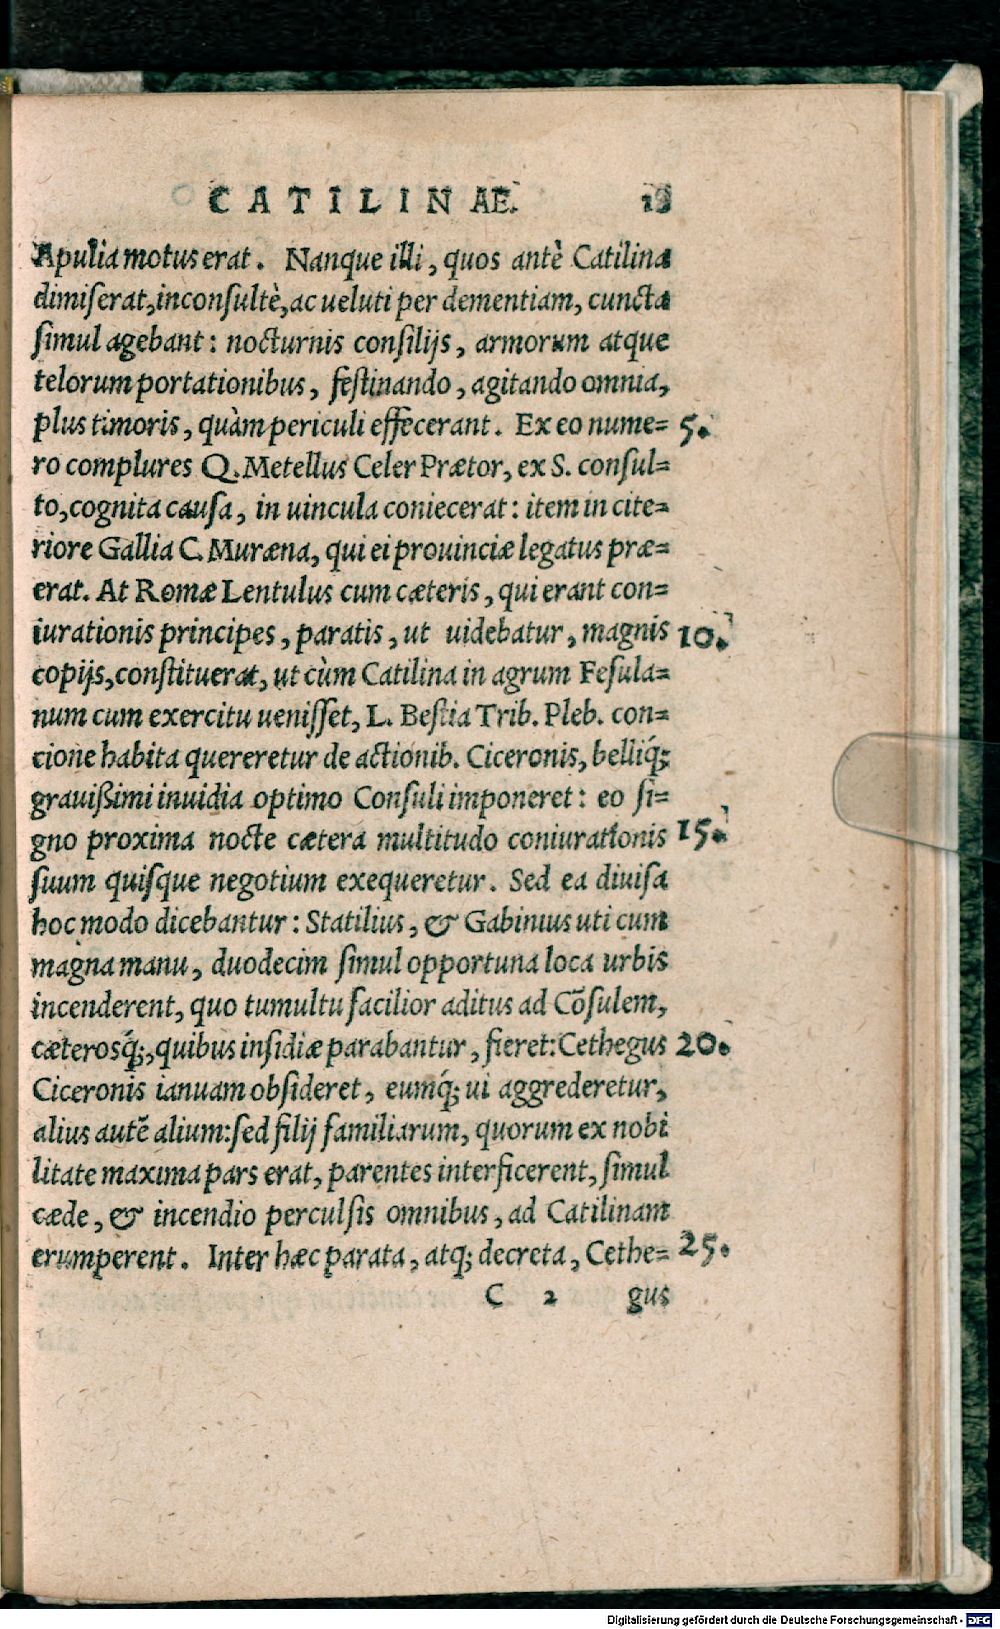 CATILINAE. 19
Apulia motus erat. Nanque illi, quos antè Catilina
dimiserat, inconsultè, ac ueluti per dementiam, cuncta
simul agebant: nocturnis consilijs, armorum atque
telorum portationibus, festinando, agitando omnia,
plus timoris, quàm periculi effecerant. Ex eo nume= 5.
ro complures Q. Metellus Celer Prætor, ex S. consul=
to, cognita causa, in uincula coniecerat: item in cite=
riore Gallia C. Muræna, qui ei prouinciæ legatus præ=
erat. At Romæ Lentulus cum cæteris, qui erant con=
iurationis principes, paratis, ut uidebatur, magnis 10.
copijs, constituerat, ut cùm Catilina in agrum Fesula=
num cum exercitu uenisset, L. Bestia Trib. Pleb. con=
cione habita quereretur de actionib. Ciceronis, belliq́;
grauißimi inuidia optimo Consuli imponeret: eo si=
gno proxima nocte cætera multitudo coniurationis 15.
suum quisque negotium exequeretur. Sed ea diuisa
hoc modo dicebantur: Statilius, & Gabinius uti cum
magna manu, duodecim simul opportuna loca urbis
incenderent, quo tumultu facilior aditus ad Cōsulem,
cæterosq́;, quibus insidiæ parabantur, fieret: Cethegus 20.
Ciceronis ianuam obsideret, eumq́; ui aggrederetur,
alius autē alium: sed filij familiarum, quorum ex nobi
litate maxima pars erat, parentes interficerent, simul
cæde, & incendio perculsis omnibus, ad Catilinam
erumperent. Inter hæc parata, atq; decreta, Cethe= 25.
C 2 gus
Digitalisierung gefördert durch die Deutsche Forschungsgemeinschaft - DFG